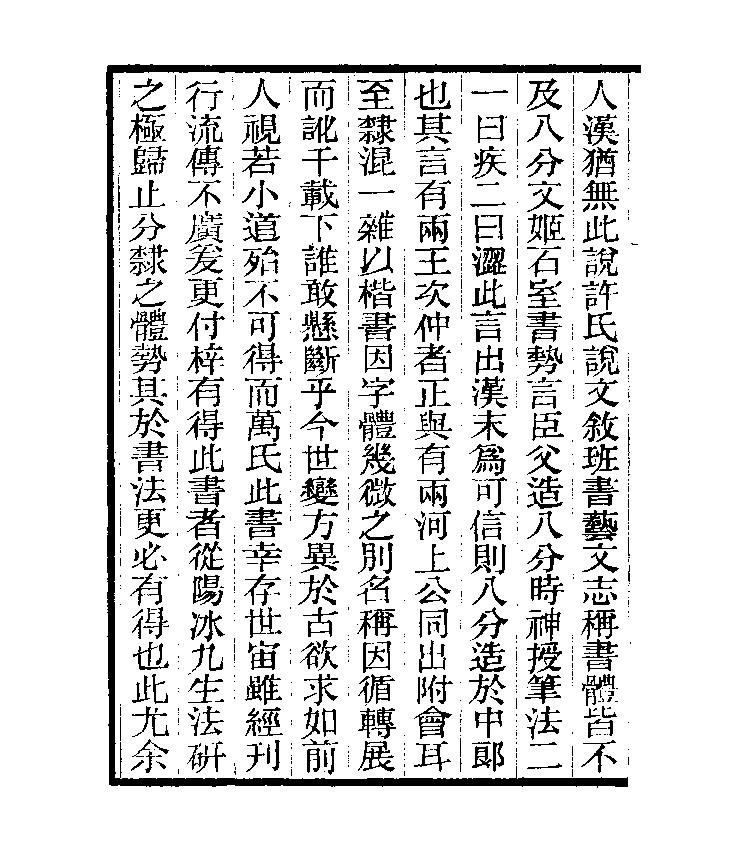 人漢猶無此說許氏說文敘班書藝文志稱書體皆不
及八分文姬石室書勢言臣父造八分時神授筆法二
一曰疾二曰澀此言出漢末爲可信則八分造於中郎
也其言有兩王次仲者正與有兩河上公同出附會耳
至隸混一雜以楷書因字體幾微之別名稱因循轉展
而訛千載下誰敢懸斷乎今世變方異於古欲求如前
人視若小道殆不可得而萬氏此書幸存世宙雖經刊
行流傳不廣爰更付梓有得此書者從陽冰九生法研
之極歸止分隸之體勢其於書法更必有得也此尤余